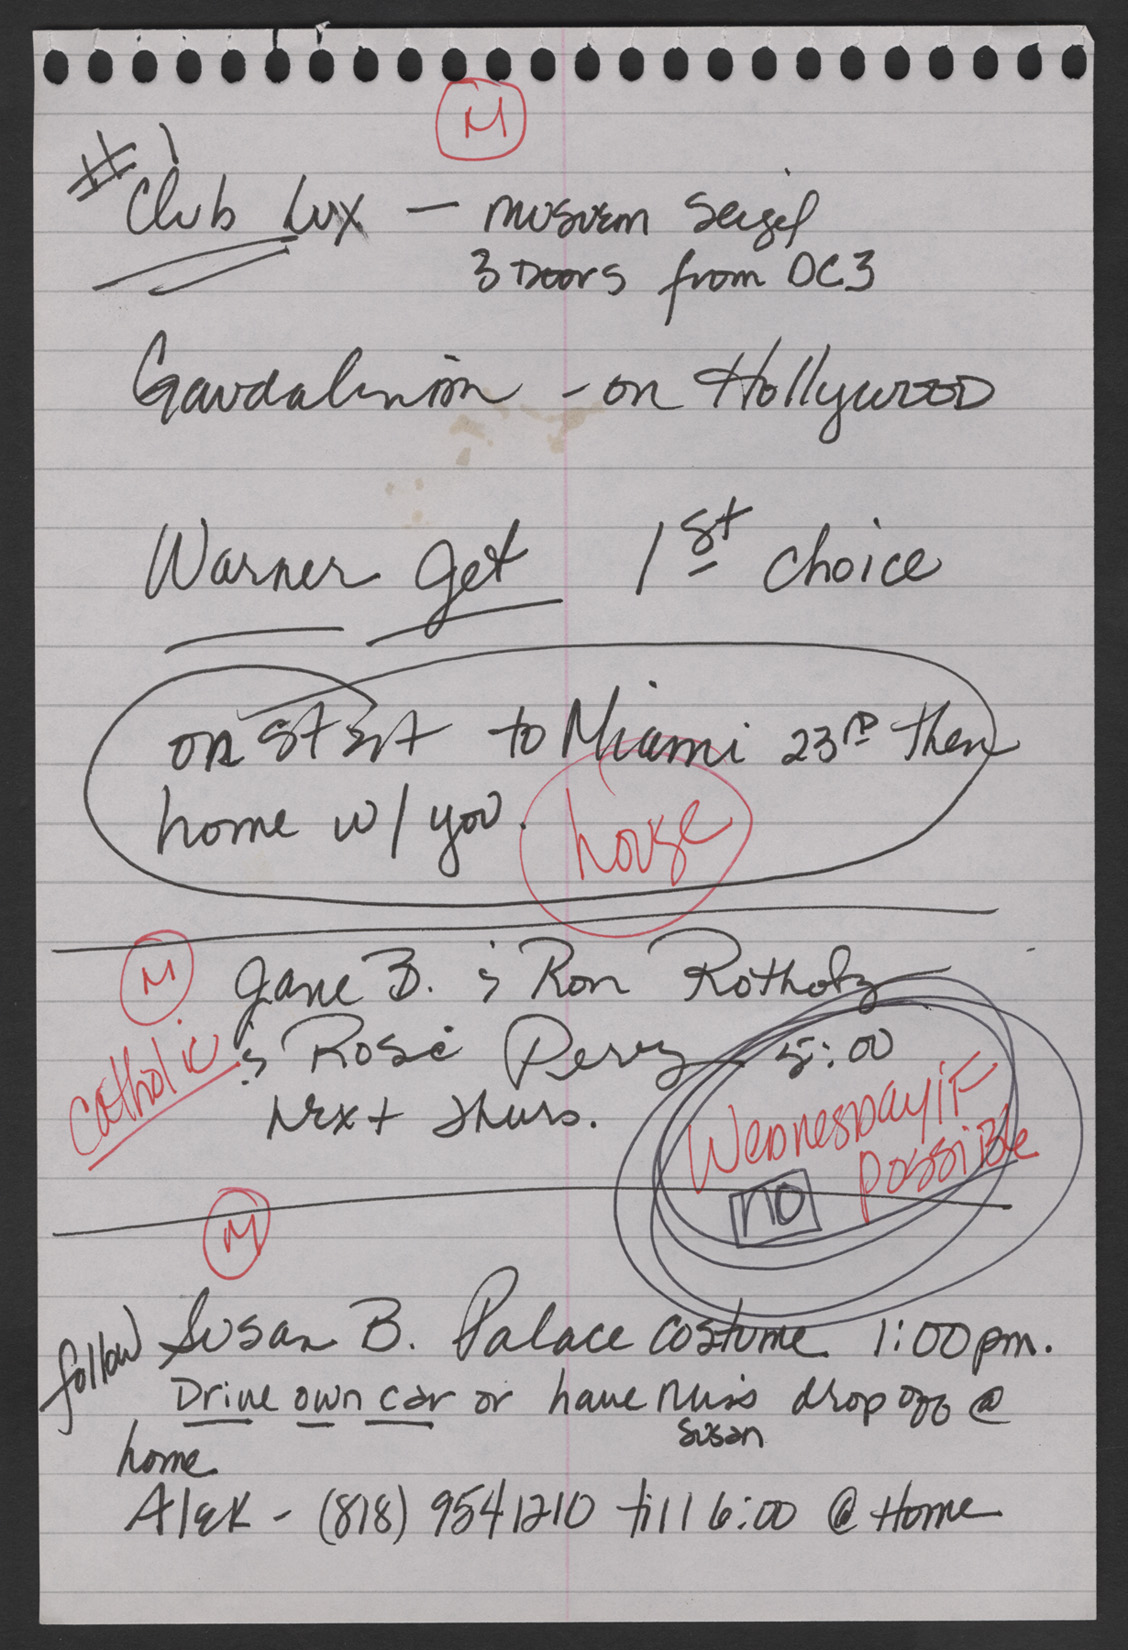 M
#1
Club Lux — museum Seigel
3 Doors from DC3
on Hollywood
Warner get 1st choice
on to Miami 23rd then
home w/ you.
house
M
Jane B. & Ron Rotholz
Catholic
& Rosie Perez 5:00
Next Thurs.
Wednesday if
possible
no
M
follow Susan B. Palace costume 1:00 pm.
Drive own car or have Miss drop off @
Susan
home
Alek - (818) 954 1210 till 6:00 @ Home